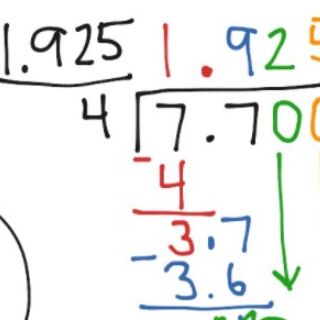 1.925 1.925
4 7.700
-4
3.7
-3.6